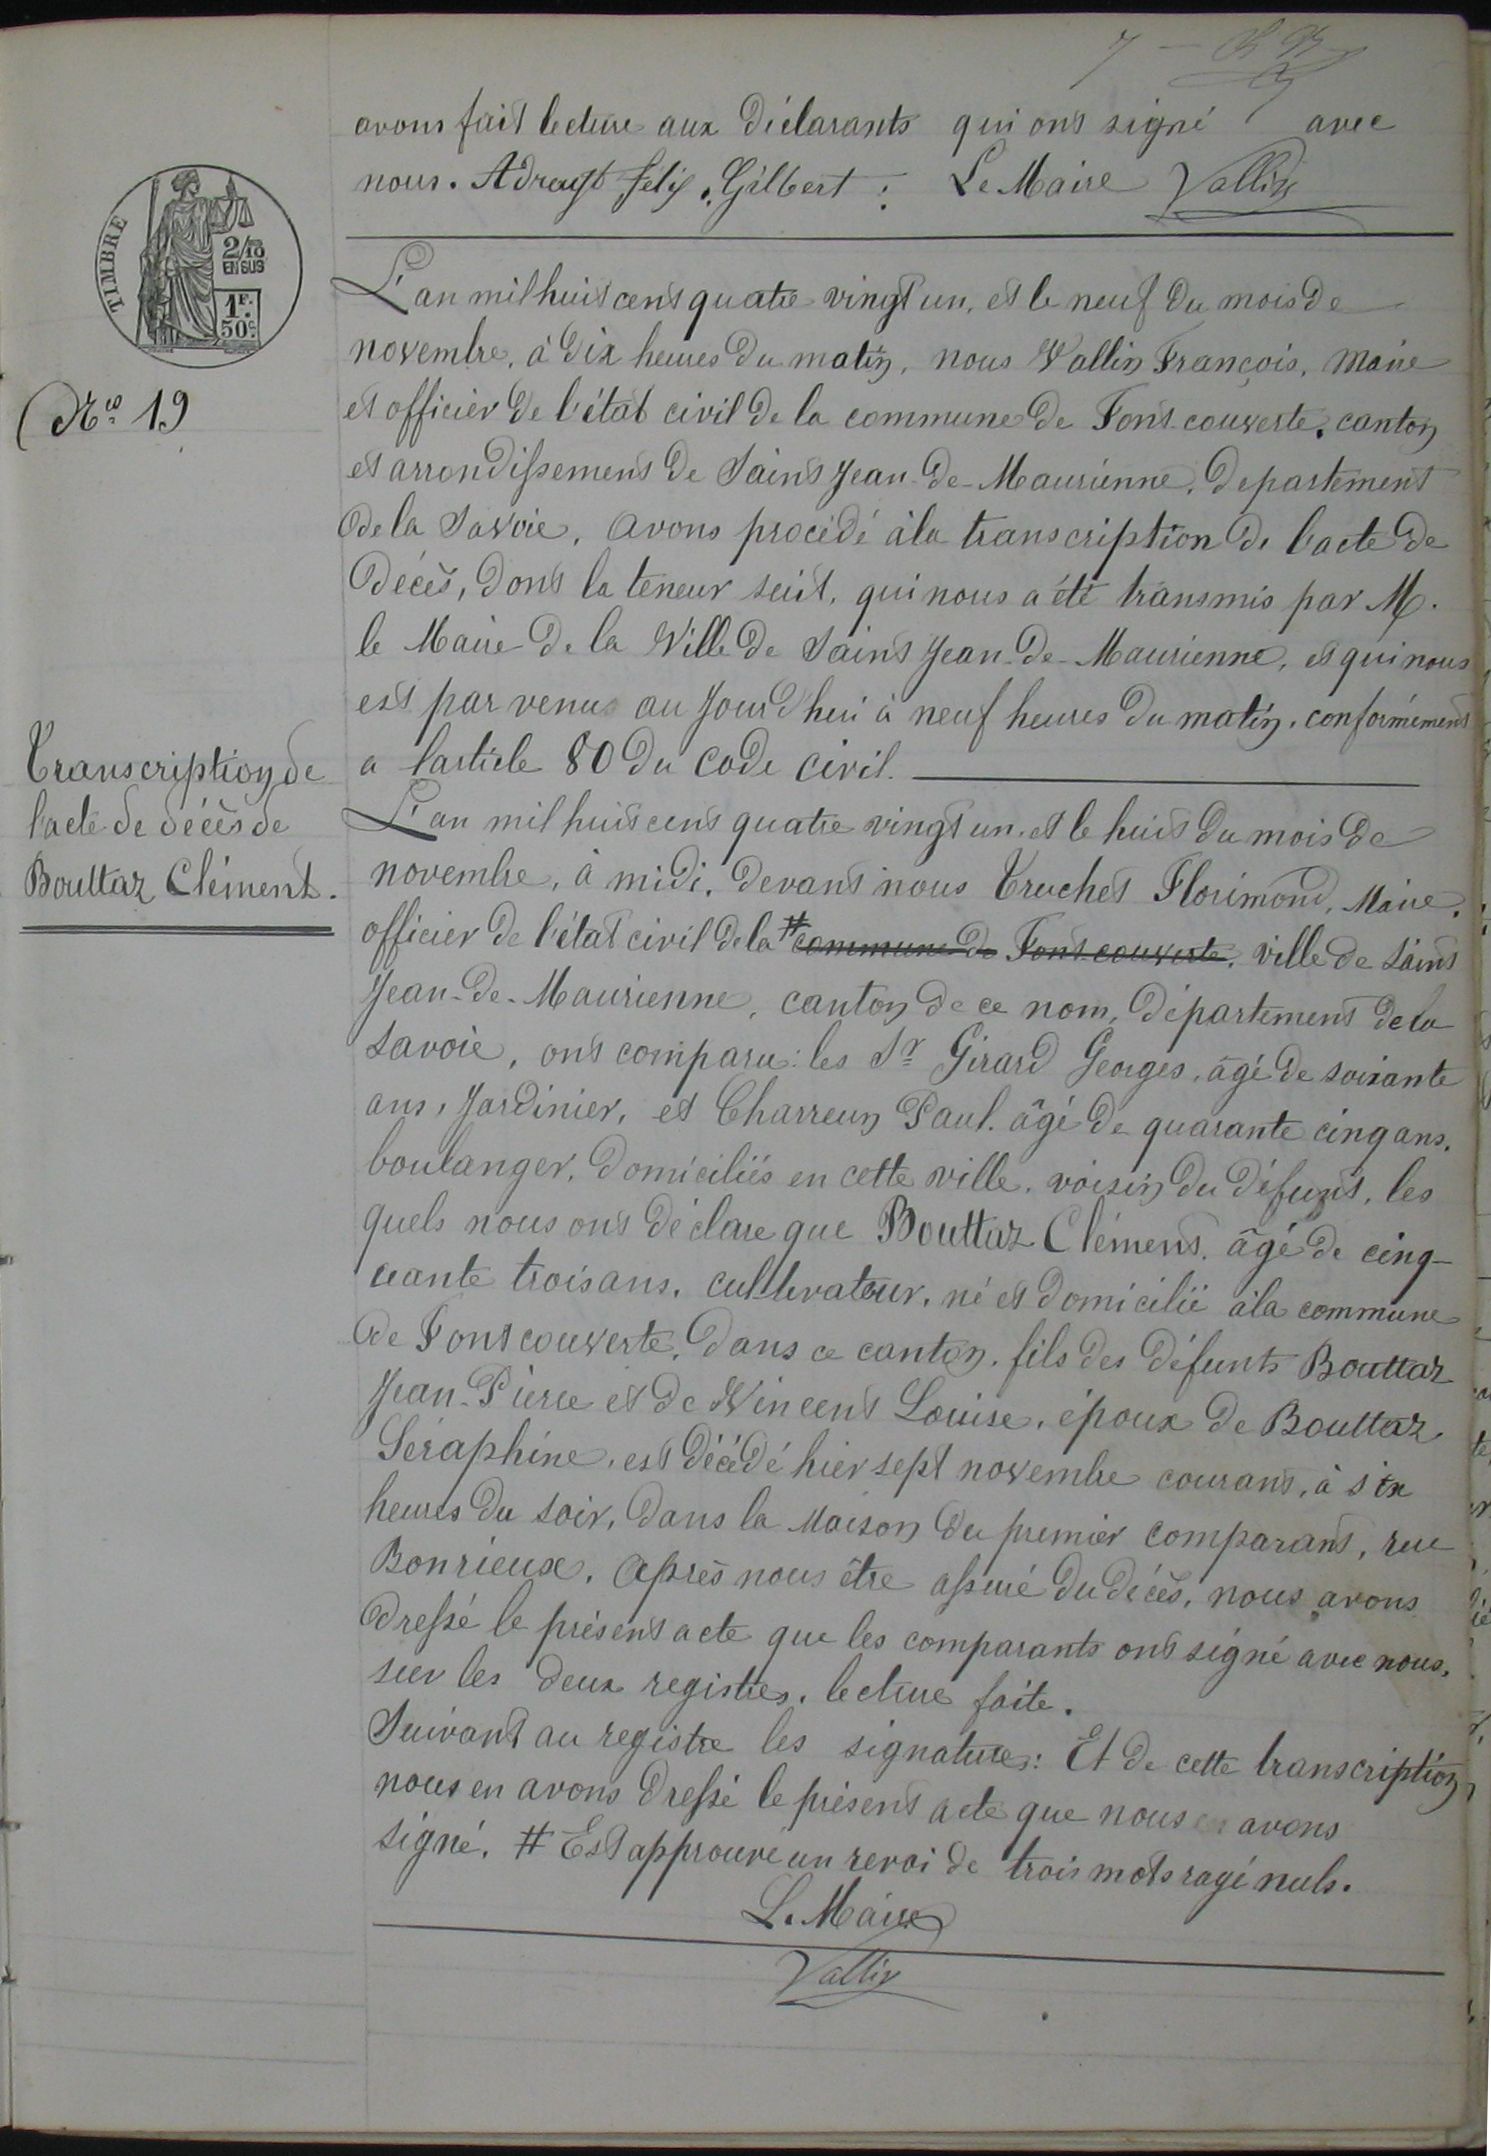 7
avons fait lecture aux déclarants qui ont signé avec
nous. Adrayt félix. Gilbert : Le Maire Vallin
TIMBRE
2/10
EN SUS
1F.
50c.
L'an mil huit cent quatre vingt un, et le neuf du mois de
novembre, à dix heures du matin, nous Vallin François, Maire
et officier de l'état civil de la commune de Font-couverte, canton
Nos 19
et arrondissement de Saint Jean-de-Maurienne, departement
de la Savoie, avons procédé à la transcription de l'acte de
décès, dont la teneur suit, qui nous a été transmis par M.
le Maire de la Ville de Saint Jean-de-Maurienne, et qui nous
est par venu au jourd'hui à neuf heures du matin, conformément
a l'article 80 du code civil.
Transcription de
l'acte de décès de
Bouttaz Clément.
L'an mil huit cent quatre vingt un, et le huit du mois de
novembre, à midi, devant nous Truchet Florimond, Maire,
officier de l'état civil de la # commune de Font couverte, ville de Saint
Jean-de-Maurienne, canton de ce nom, département de la
Savoie, ont comparu: les Sr Girard Georges, âgé de soixante
ans, Jardinier, et Charreun Paul. âgé de quarante cinq ans,
boulanger, domiciliés en cette ville, voisin du défunt, les
quels nous ont déclare que Bouttaz Clément, âgé de cinq-
uante trois ans, cultivateur, né et domicilié à la commune
de Font couverte, dans ce canton, fils des défunts Bouttaz
Jean-Pierre et de Vincent Louise, époux de Bouttaz
Séraphine, est décédé hier sept novembre courant, à six
heures du soir, dans la Maison du premier comparant, rue
Bonrieux. Après nous être assuré du décès, nous avons
dressé le présent acte que les comparants ont signé avec nous,
sur les deux registres, lecture faite.
Suivant au registre les signatures: Et de cette transcription
nous en avons dressé le présent acte que nous avons
signé. # Est approuvé un renvoi de trois mots rayé nuls.
Le Maire
Vallin